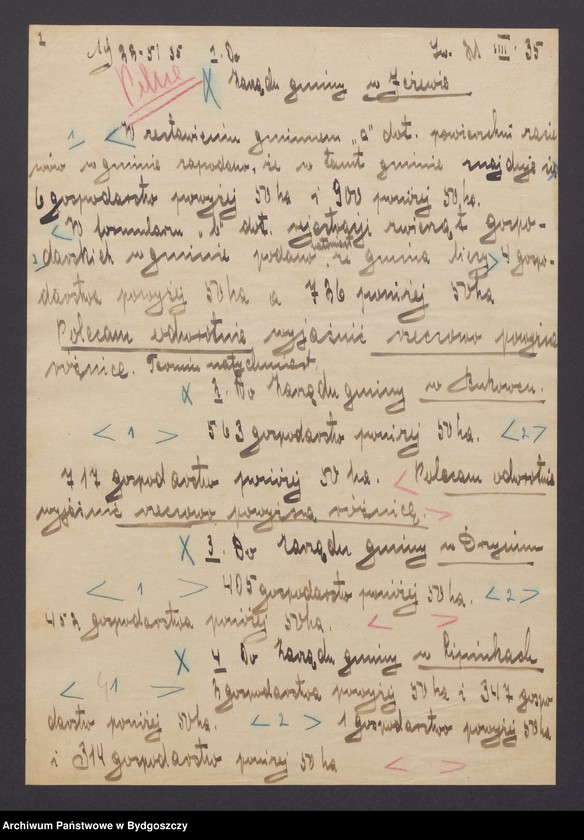 1
1. Do
35
Pilne
X Zarządu gminy w Jeżewie
1 < W zestawieniu gminnem „a” dot. powierzchni zasie
wów w gminie zapodano, że w tamt gminie znajduje się
6 gospodarstw powyżej 50 ha i 900 poniżej 50 ha.
< W formularzu „b” dot. rejestracji zwierząt gospo-
natomiast
2 > darskich w gminie podano że gmina liczy > 4 gospo-
darstwa powyżej 50 ha a 736 poniżej 50 ha
Polecam odwrotnie wyjaśnić rzeczowo powyższą
różnicę. Termin natychmiast.
X 2. Do Zarządu gminy w Bukowcu.
< 1 > 563 gospodarstw poniżej 50 ha. < 2 >
717 gospodarstw poniżej 50 ha. < Polecam odwrotnie
wyjaśnić rzeczowo powyższą różnicę. >
X 3. Do Zarządu gminy w Drzycimiu
< 1 > 405 gospodarstw poniżej 50 ha. < 2 >
452 gospodarstwa poniżej 50 ha. < >
X 4 Do Zarządu gminy w Lipinkach
< 1 > gospodarstwa powyżej 50 ha i 347 gospo
darstw poniżej 50 ha. < 2 > 1 gospodarstwo powyżej 50 ha
i 314 gospodarstw poniżej 50 ha < >
Archiwum Państwowe w Bydgoszczy